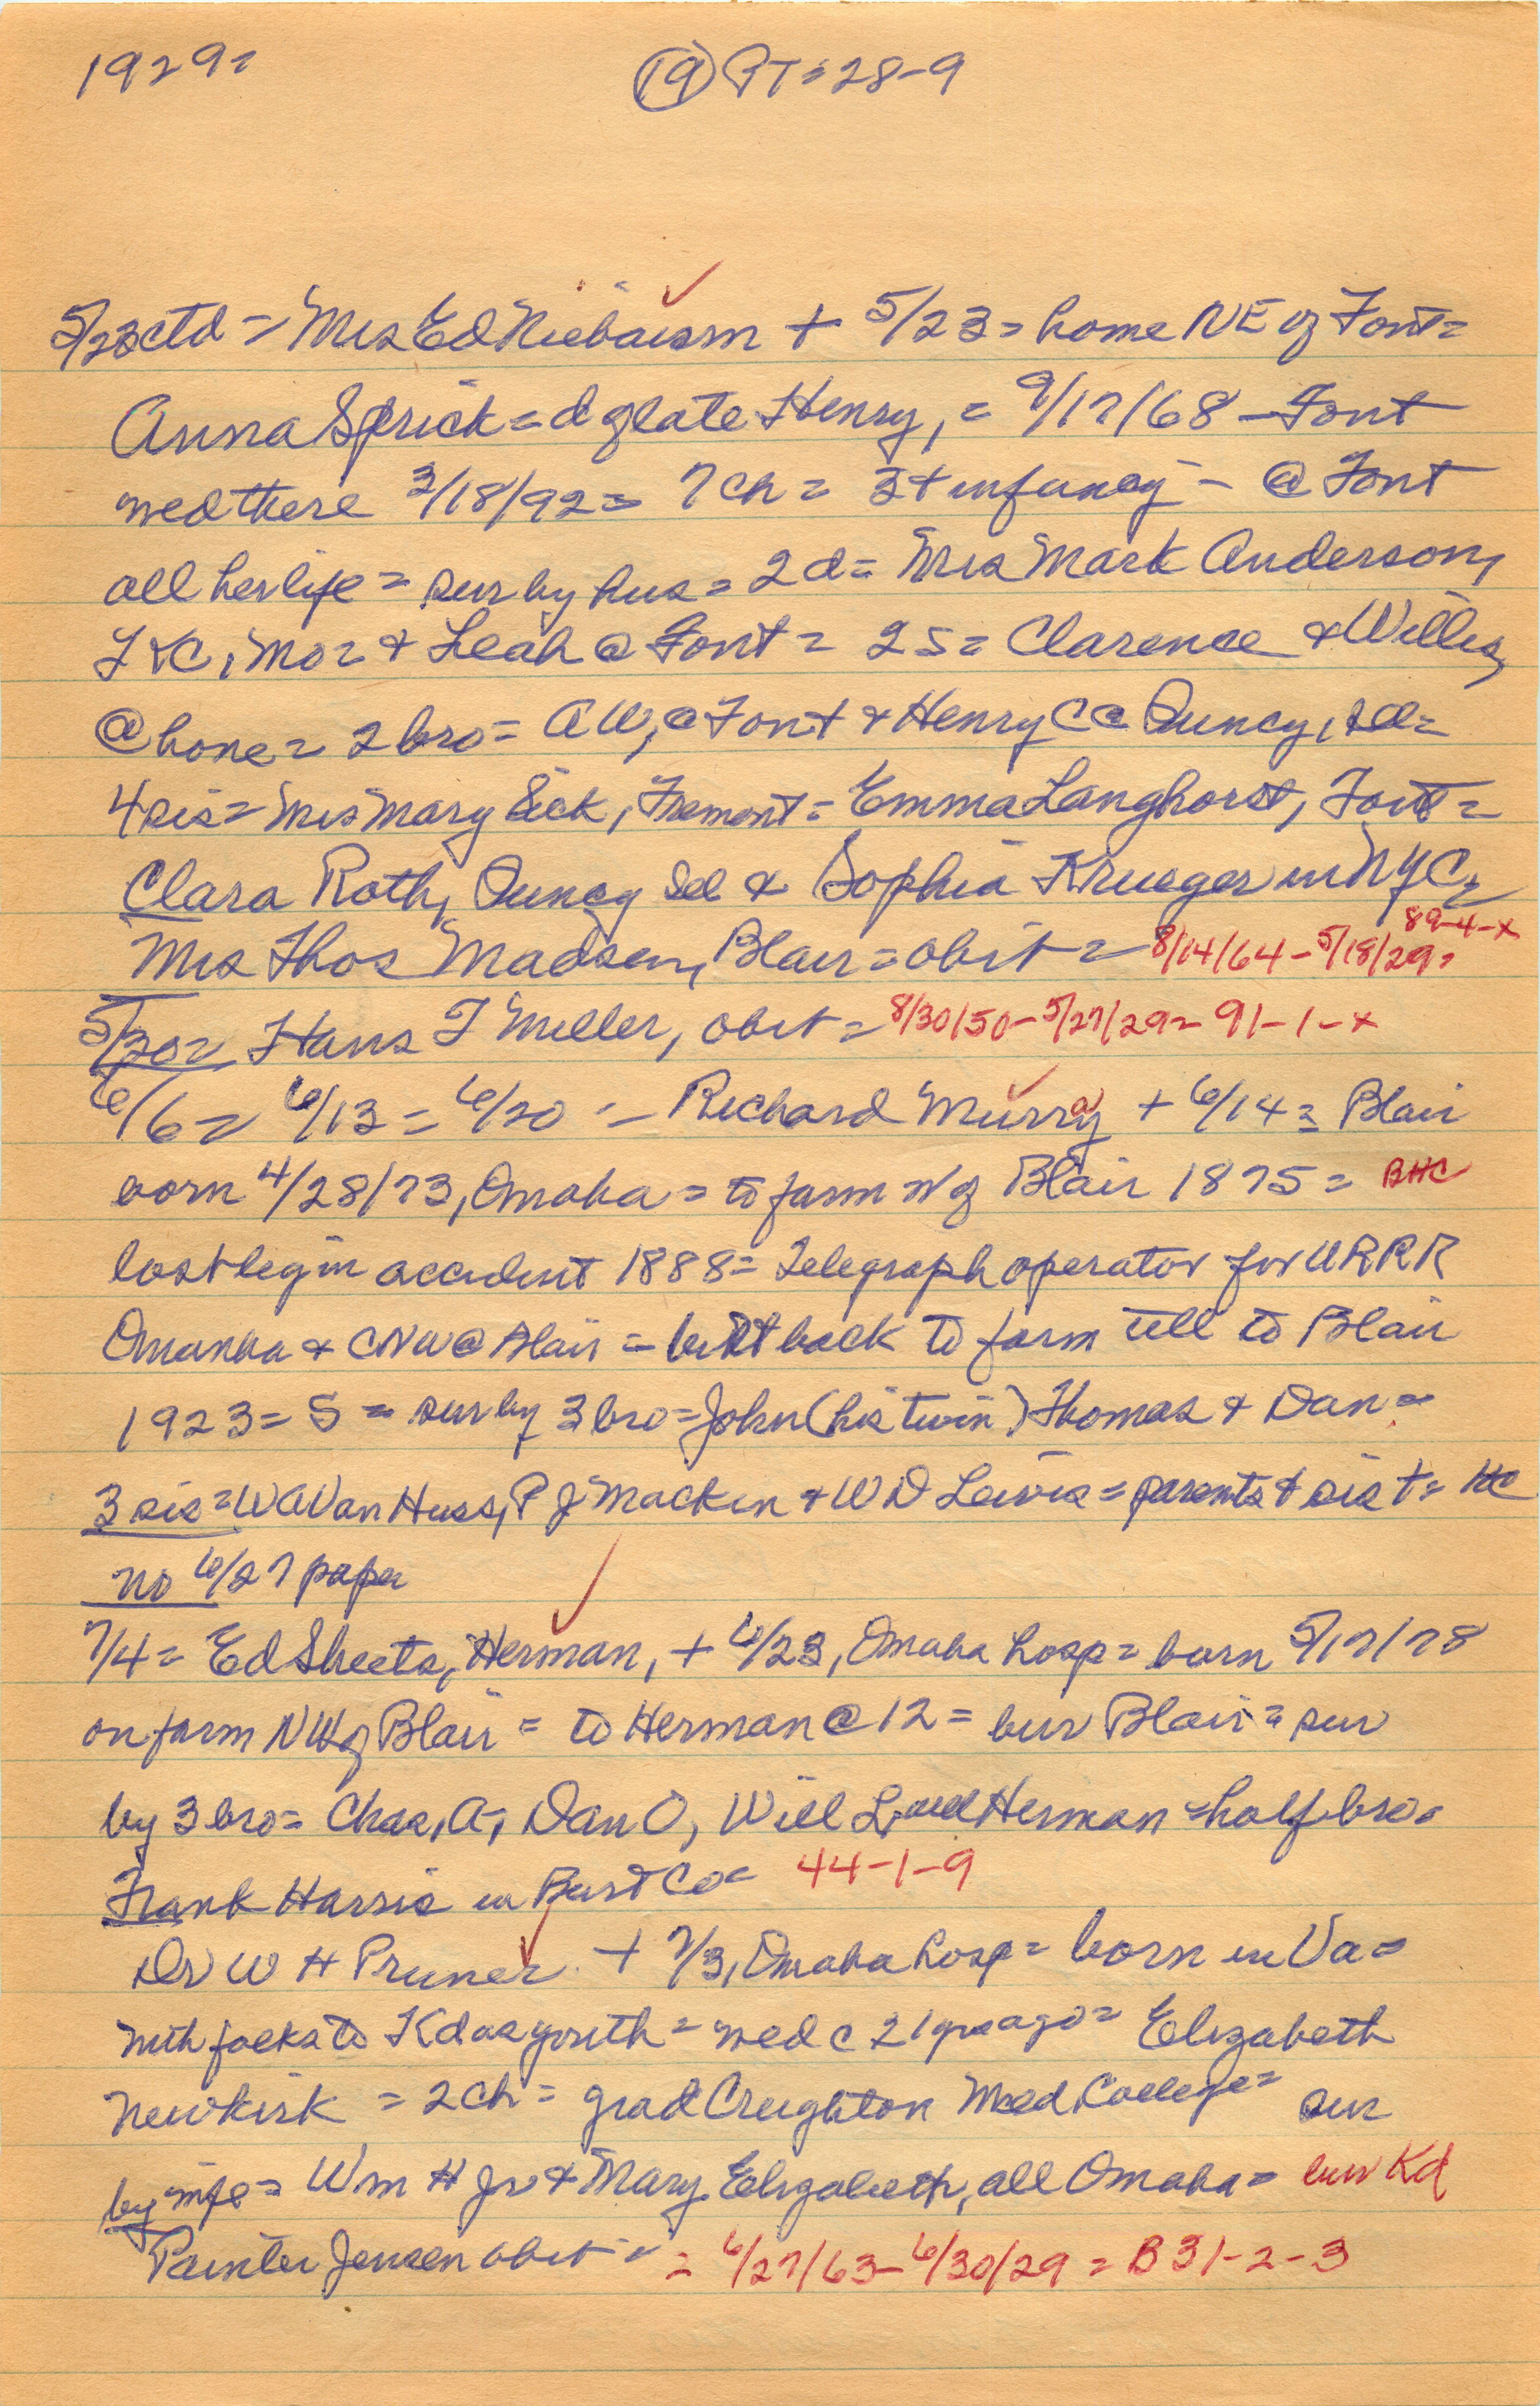 1929= (19) PT=28-9
5/23 ctd = Mrs Ed Niebaum + 5/23 = home NE of Font=
Anna Sprick = d of late Henry, = 9/17/68 - Font
wed there 3/18/92 = 7 ch = 3 + infancy - @ Font
all her life = sur by hus = 2 d = Mrs Mark Anderson,
KC, Mo = & Leah @ Font = 2 S = Clarence & Willis,
@ home = 2 bro = AW, @ Font & Henry C @ Quincy, Ill=
4 sis = Mrs Mary Sick, Fremont = Emma Langhorst, Font =
Clara Roth, Quincy Ill & Sophia Krueger in NYC=
89-4-x
Mrs Thos Madsen, Blair = obit = 8/14/64 - 5/18/29=
5/30= Hans T Miller, obit = 8/30/50 - 5/27/29 = 91-1-x
6/6 = 6/13 = 6/20 = Richard Murray + 6/14 = Blair
born 4/28/73, Omaha = to farm W of Blair 1875 = BHC
lost leg in accident 1888 = Telegraph operator for UPRR
Omanha & CNW @ Blair = back to farm till to Blair
1923 = S = sur by 3 bro = John (his twin) Thomas & Dan =
3 sis = WA Van Huss, P J Macken & W D Lewis = parents & sis + = HC
no 6/27 paper
7/4 = Ed Sheets, Herman, + 6/23, Omaha hosp = born 5/17/78
on farm NW of Blair = to Herman @ 12 = bur Blair = sur
by 3 bro = Chas, A, Dan O, Will L, all Herman = half bro =
Frank Harris in Burt Co = 44-1-9
Dr W H Pruner + 7/3, Omaha hosp = born in Va =
with folks to Kd as youth = wed c 21 yrs ago = Elizabeth
Newkirk = 2 ch = grad Creighton Med College = sur
by wife = Wm H Jr & Mary Elizabeth, all Omaha = bur Kd
Painter Jensen obit = = 6/27/63 - 6/30/29 = B 31-2-3